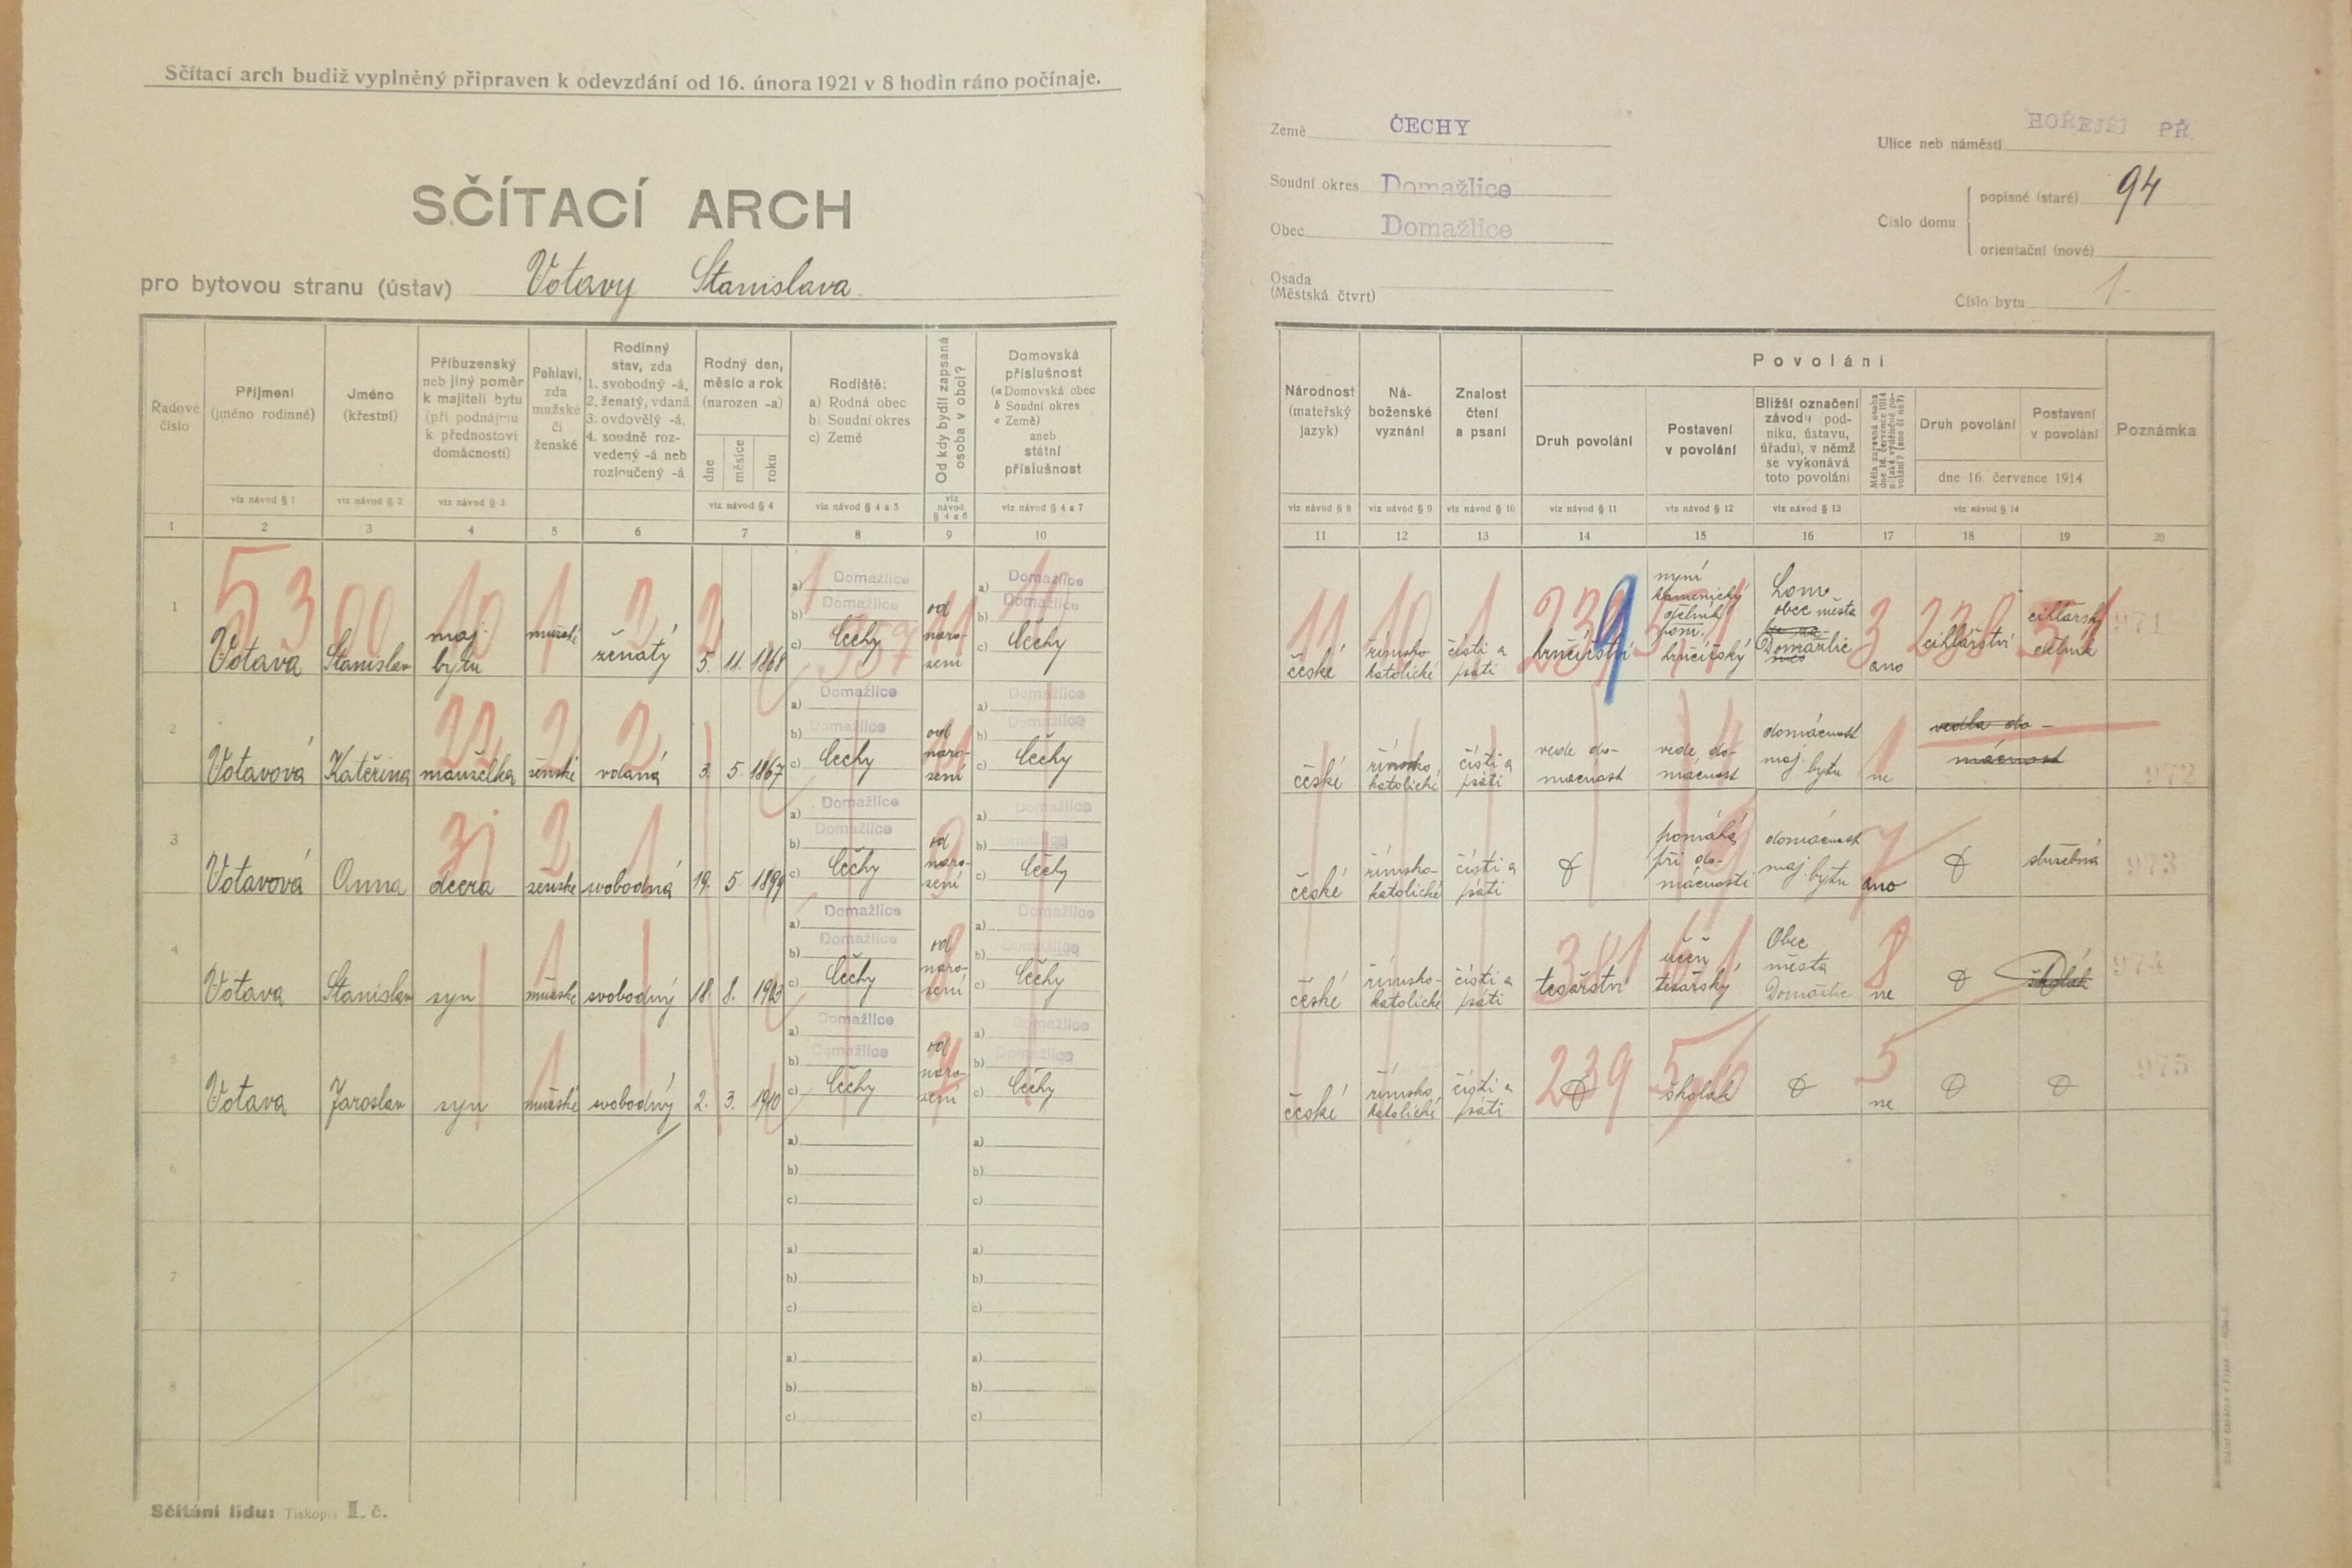 Sčítací arch budiž vyplněný připraven k odevzdání od 16. února 1921 v 8 hodin ráno počínaje.
SČÍTACÍ ARCH
pro bytovou stranu (ústav) Votavy Stanislava.
Řadové číslo
Příjmení
(jméno rodinné)
Jméno
(křestní)
Příbuzenský
neb jiný poměr
k majiteli bytu
(při podnájmu
k přednostovi
domácnosti)
Pohlaví,
zda
mužské
či
ženské
Rodinný
stav, zda
1. svobodný -á,
2. ženatý, vdaná
3. ovdovělý -á,
4. soudně roz-
vedený -á neb
rozloučený -á
Rodný den,
měsíc a rok
(narozen -a)
dne
měsíce
roku
Rodiště:
a) Rodná obec
b) Soudní okres
c) Země
Od kdy bydlí zapsaná
osoba v obci?
Domovská
příslušnost
(a Domovská obec
b Soudní okres
c Země)
aneb
státní
příslušnost
viz návod § 1
viz návod § 2
viz návod § 3
viz návod § 4
viz návod § 4 a 5
viz návod § 4 a 6
viz návod § 4 a 7
1 2 3 4 5 6 7 8 9 10
1 Votava Stanislav maj. bytu mužské ženatý 5. 11. 1868 a) Domažlice b) Domažlice c) Čechy od naro-zení a) Domažlice b) Domažlice c) Čechy
2 Votavová Kateřina manželka ženské vdaná 3. 5. 1867 a) Domažlice b) Domažlice c) Čechy od naro-zení a) Domažlice b) Domažlice c) Čechy
3 Votavová Anna dcera ženské svobodná 19. 5. 1899 a) Domažlice b) Domažlice c) Čechy od naro-zení a) Domažlice b) Domažlice c) Čechy
4 Votava Stanislav syn mužské svobodný 18. 8. 1903 a) Domažlice b) Domažlice c) Čechy od naro-zení a) Domažlice b) Domažlice c) Čechy
5 Votava Jaroslav syn mužské svobodný 2. 3. 1910 a) Domažlice b) Domažlice c) Čechy od naro-zení a) Domažlice b) Domažlice c) Čechy
6 a) b) c) a) b) c)
7 a) b) c) a) b) c)
8 a) b) c) a) b) c)
Sčítání lidu: Tiskopis II. č.
Země ČECHY
Soudní okres Domažlice
Obec Domažlice
Osada
(Městská čtvrt)
Ulice neb náměstí HOŘEJŠÍ PŘ.
Číslo domu
popisné (staré) 94
orientační (nové)
Číslo bytu 1.
Národnost
(mateřský
jazyk)
Ná-
boženské
vyznání
Znalost
čtení
a psaní
Povolání
Druh povolání
Postavení
v povolání
Bližší označení
závodu (pod-
niku, ústavu,
úřadu), v němž
se vykonává
toto povolání
Měla zapsaná osoba
dne 16. července 1914
nějaké výdělečné po-
volání? (ano či ne?)
Druh povolání
Postavení
v povolání
dne 16. července 1914
Poznámka
viz návod § 8
viz návod § 9
viz návod § 10
viz návod § 11
viz návod § 12
viz návod § 13
viz návod § 14
11 12 13 14 15 16 17 18 19 20
české římsko katolické čísti a psáti 239 hrnčířství nyní kamenický dělník pom. hrnčířský Lom obec města Domažlic 3 ano 238 cihlářství cihlářský dělník 971
české římsko katolické čísti a psáti vede do-mácnost vede do-mácnost domácnost maj. bytu ne vedla do-mácnost 972
české římsko-katolické čísti a psáti pomáhá při do-mácnosti domácnost maj. bytu ano služebná 973
české římsko-katolické čísti a psáti 381 tesařství učeň tesařský Obec města Domažlic 8 ne školák 974
české římsko katolické čísti a psáti 239 školák 5 ne 975